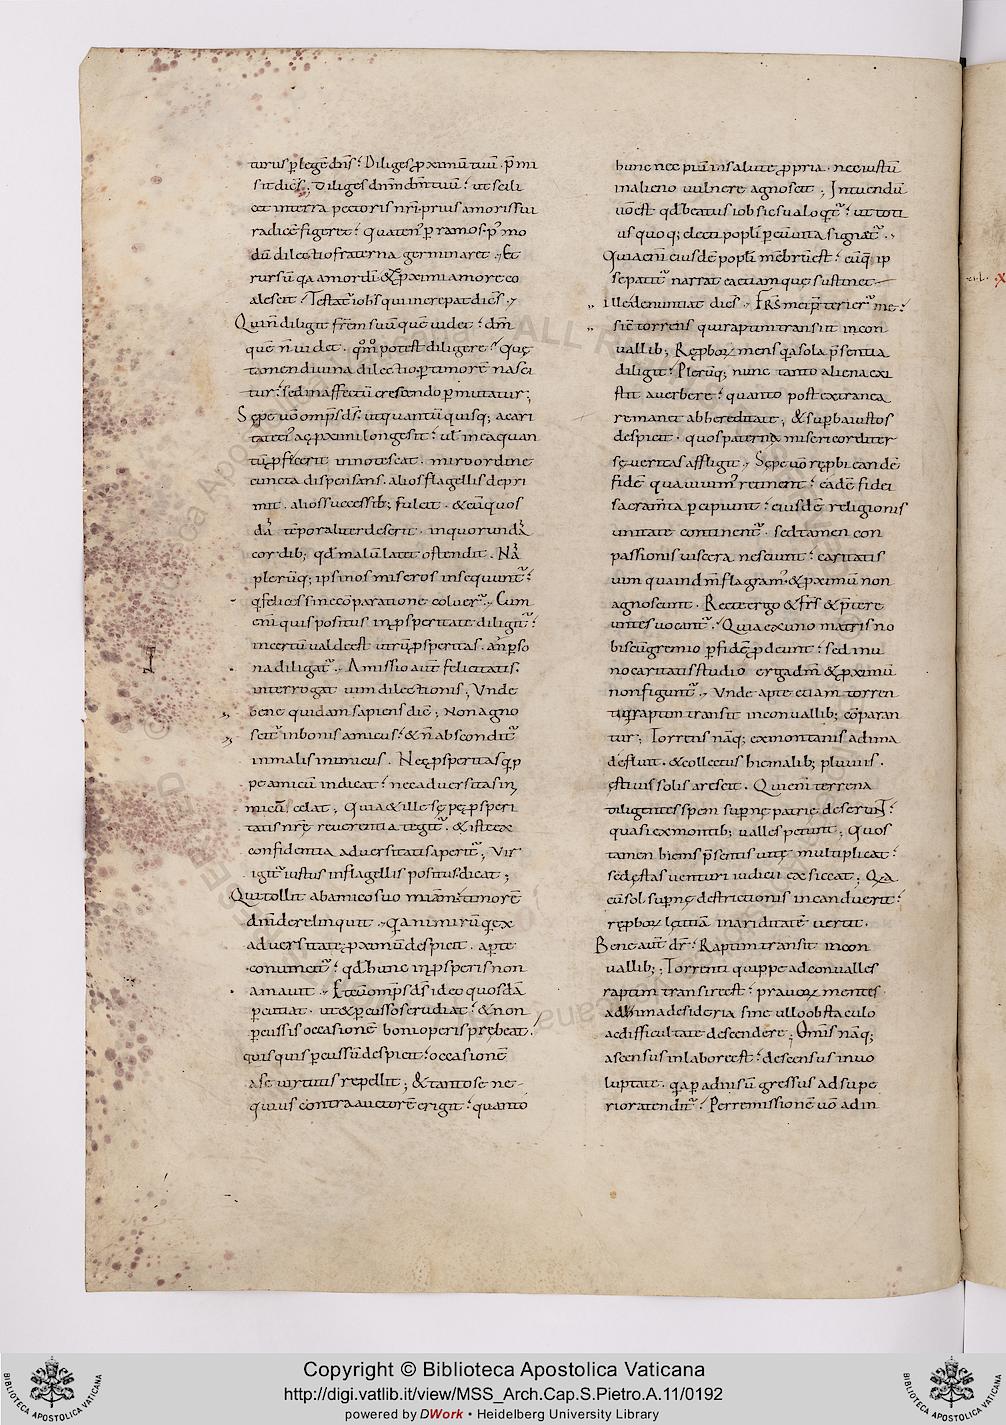 turus p̱ legē dn̄s ; Diliges p̱ximū tuū . p̄mi
sit dicēs ; Diliges dn̄m dm̄ tuū ; ut scili
cet in terra pectoris nr̄i prius amoris sui
radicē figeret ; quaten' p̱ ramos p' mo
dū dilectio fraterna germinaret . Et
rursū qa amor di & p̱ximi amore co
alescit ; Testat' iohs qui increpat dicēs .
Qui n̄ diligit frēm suū quē uidet ; dm̄
quē n̄ uidet . qm̄ potest diligere ; Quę
tamen divina dilectio p̱ timorē nasci
tur ; sed in affectū crescendo p̱mutatur ;
Sępe uō omp̄s ds̄ . ut quantū quisq; a cari
tate ei' ac p̱ximi longe sit ; ul in ea quan
tū p̱fecerit innotescat . miro ordine
cuncta dispensans . alios flagellis depri
mit . alios successib; fulcit . & cū quos
dā temporaliter deserit . in quorundā
cordib; qd malū latet ostendit . Nā
plerūq; ipsi nos miseros insequunt' ;
q felices sine cōparatione coluer' . Cum
eni quis positus in p̱speritate diligit' ;
incertū ualde est utrū p̱speritas . an p̱so
na diligat' . Amissio autē felicitatis .
interrogat uim dilectionis ; Unde
bene quidam sapiens dic̄ ; Non agno
scit' in bonis amicus ; & n̄ abscondit'
in malis inimicus . Nec p̱speritas q̄p
pe amicū indicat ; nec adversitas in
imicū celat ; Quia & ille sępe p̱speri
tatis nrę reverentia tegit' . & iste ex
confidentia adversitatis aperit' ; Vir
igit' iustus in flagellis positus dicat ;
Qui tollit ab amico suo miam ; timorē
dn̄i derelinquit . qa nimirū q ex
adversitate p̱ximū despicit . ap̱te
convincit' ; qd hunc in p̱speris non
amavit . Et cū omp̄s ds̄ ideo quosdā
p̱cutiat . ut & p̱cussos erudiat ; & non
p̱cussis occasionē boni operis prębeat ;
quisquis p̱cussū despicit ; occasionē
a se virtutis repellit ; & tanto se ne-
quius contra auctorē erigit ; quanto
hunc nec piū in salute p̱pria . nec iustū
in alieno vulnere agnoscit ; Intuendū
uō est qd beatus iob sic sua loqt' ; ut toti
us quoq; electi popli p̱ eū uita signat' .
Quia eni eiusdē popli mēbrū est ; cūq ip
se patit' narrat ea etiam quę sustinet
ille denuntiat dicēs . Frs̄ mei p̄terier' me ;
sic̄ torrens qui raptim transit in con
uallib; Reproboꝝ mens qa sola p̄sentia
diligit ; Plerūq; nunc tanto aliena exi
stit a verbere ; quanto post extranea
remanet ab hereditate ; & sup̱ba iustos
despicit . quos paterna misericorditer
severitas affligit . Sępe uō reprobi eandē
fidē qua uiuim' retinent ; eadē fidei
sacram̄ta p̱cipiunt ; eiusdē religionis
unitate continent' . sed tamen con
passionis viscera nesciunt ; caritatis
uim qua in dm̄ flagram' & p̱ximū non
agnoscunt . Recte ergo & frs̄ & p̄tere
untes vocant' . Quia ex uno matris no
bis cū gremio p̱ fidē p̱deunt ; sed in u
no caritatis studio erga dm̄ & p̱ximū
non figunt' . Unde apte etiam torren
ti q raptim transit in conuallib; cōparan
tur ; Torrens nāq; ex montanis ad ima
defluit . & collectus hiemalib; pluviis .
ęstivis solis arescit . Qui eni terrena
diligentes spem sup̱nę patrię deserūt ;
quasi ex montib; valles petunt ; Quos
tamen hiems p̄sentis uitę multiplicat ;
sed ęstas venturi iudicii exsiccat . Qa
cū sol sup̱nę districtionis incanduerit ;
reproboꝝ lętitiā in ariditatē vertit .
Bene aut dr̄ ; Raptim transit in con
uallib; ; Torrenti quippe ad convalles
raptim transire est ; pravoꝝ mentes
ad ima desideria sine ullo obstaculo
ac difficultate descendere ; Omis nāq;
ascensus in labore est ; descensus in vo
luptate . qa p̱ adnisū gressus ad supe
riora tendit' ; Per remissionē uō ad in
Copyright © Biblioteca Apostolica Vaticana
http://digi.vatlib.it/view/MSS_Arch.Cap.S.Pietro.A.11/0192
powered by DWork • Heidelberg University Library